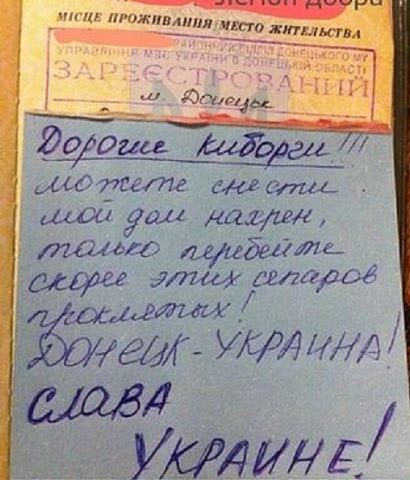 Легион добра
МІСЦЕ ПРОЖИВАННЯ/МЕСТО ЖИТЕЛЬСТВА
РАЙОННИЙ ВІДДІЛ ДОНЕЦЬКОГО МУ
УПРАВЛІННЯ МВС УКРАЇНИ В ДОНЕЦЬКІЙ ОБЛАСТІ
ЗАРЕЄСТРОВАНИЙ
м. Донецьк
Дорогие киборги!!!
можете снести
мой дом нахрен,
только перебейте
скорее этих сепаров
проклятых!
ДОНЕЦК-УКРАИНА!
СЛАВА
УКРАИНЕ!